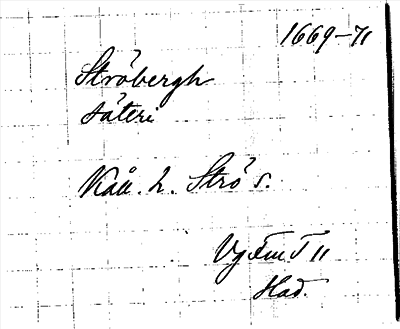 1669-71
Ströbergh
säteri
Kåll. h. Strö s.
Vg Fmf 11
Had.